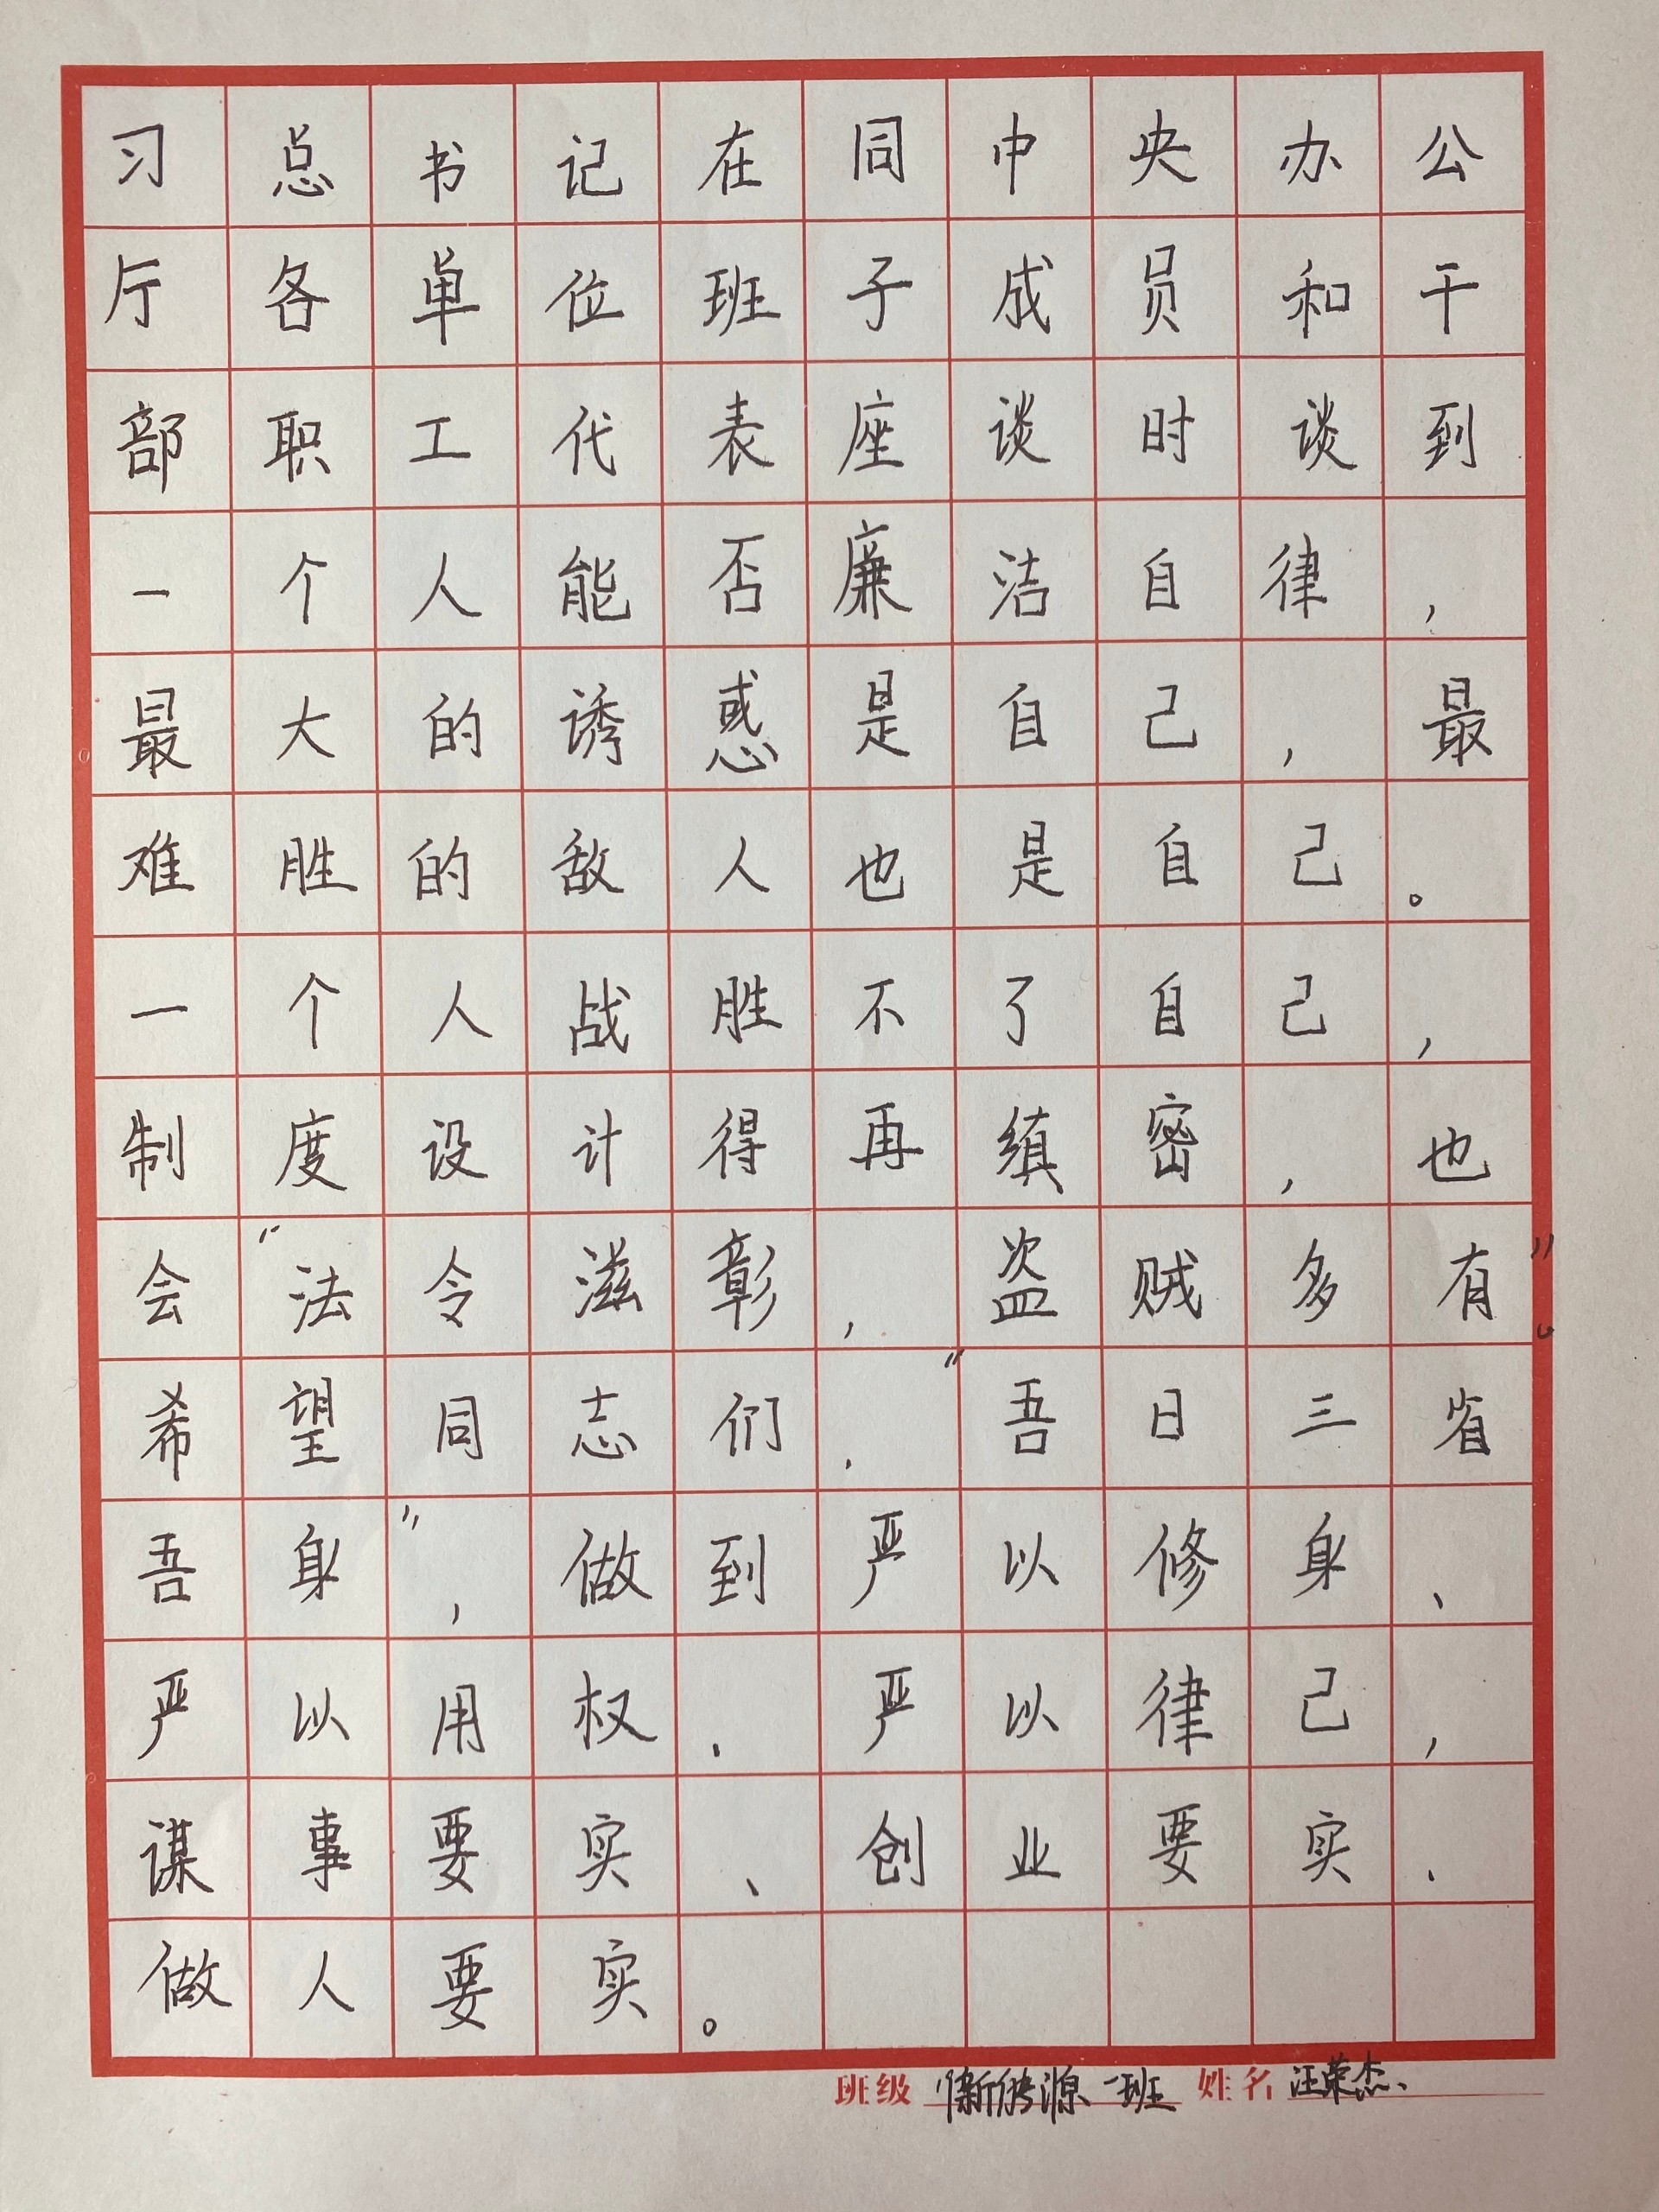 习总书记在同中央办公
厅各单位班子成员和干
部职工代表座谈时谈到
一个人能否廉洁自律，
最大的诱惑是自己，最
难胜的敌人也是自己。
一个人战胜不了自己，
制度设计得再缜密，也
会“法令滋彰，盗贼多有”。
希望同志们、“吾日三省
吾身”，做到严以修身、
严以用权、严以律己，
谋事要实、创业要实、
做人要实。
班级 新能源一班 姓名 汪荣杰